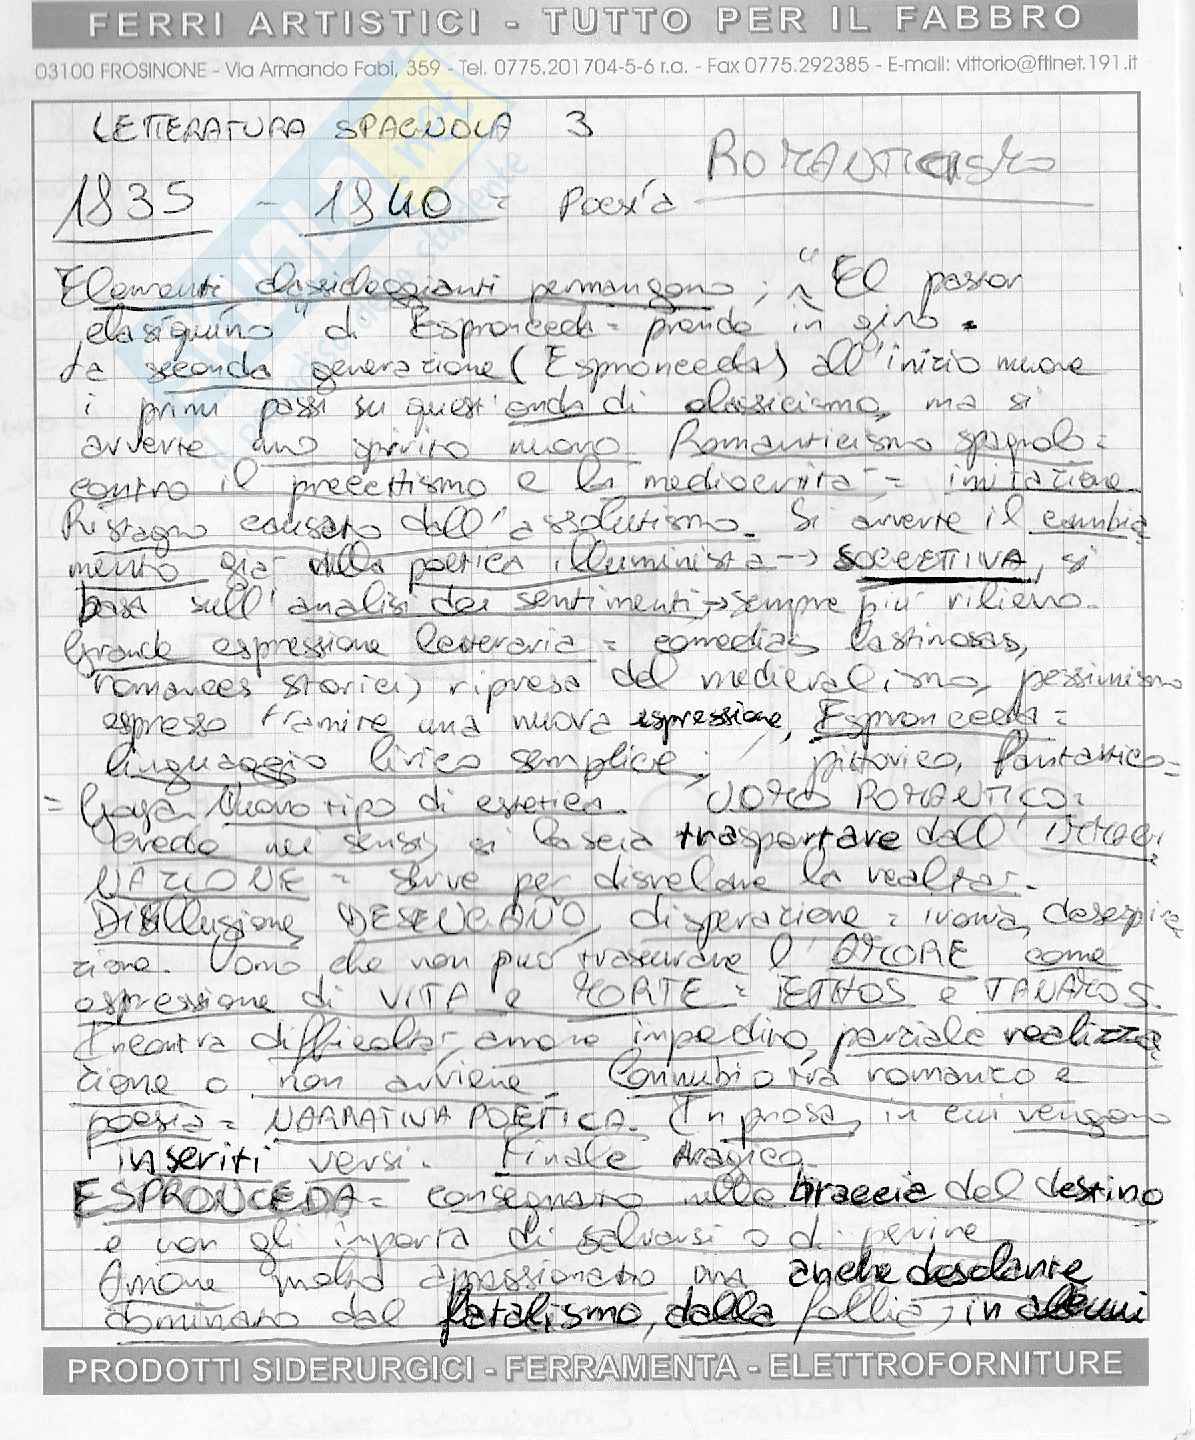 FERRI ARTISTICI - TUTTO PER IL FABBRO
03100 FROSINONE - Via Armando Fabi, 359 - Tel. 0775.201704-5-6 r.a. - Fax 0775.292385 - E-mail: vittorio@ftinet.191.it
LETTERATURA SPAGNOLA 3
ROMANTICISMO
1835 - 1840 = Poesia
Elementi classicheggianti permangono; "El pastor
clasiquino" di Espronceda = prende in giro.
La seconda generazione (Espronceda) all'inizio muove
i primi passi su quest'onda di classicismo, ma si
avverte uno spirito nuovo. Romanticismo spagnolo =
contro il precettismo e la mediocrità = imitazione.
Ristagno causato dall'assolutismo. Si avverte il cambia
mento già nella poetica illuminista → SOGGETTIVA, si
basa sull'analisi dei sentimenti → sempre più rilievo.
Grande espressione letteraria = comedias lastimosas,
romances storici, ripresa del medievalismo, pessimismo
espresso tramite una nuova espressione, Espronceda =
linguaggio lirico semplice; pittorico, fantastico =
= Goya. Nuovo tipo di estetica. UOMO ROMANTICO =
Crede nei sensi, si lascia trasportare dall'IMMAGI
NAZIONE = serve per disvelare la realtà.
Disillusione, DESENGAÑO, disperazione = ironia, desespira
zione. Uomo che non può trascurare l'AMORE come
espressione di VITA e MORTE = ETHOS e TANATOS.
Incontra difficoltà, amore impedito, parziale realizza
zione o non avviene. Connubio tra romanzo e
poesia = NARRATIVA POETICA. In prosa, in cui vengono
inseriti versi. Finale tragico.
ESPRONCEDA = consegnato nelle braccia del destino
e non gli importa di salvarsi o di perire.
Amore molto appassionato ma anche desolante
dominato dal fatalismo, dalla follia, in alcuni
PRODOTTI SIDERURGICI - FERRAMENTA - ELETTROFORNITURE